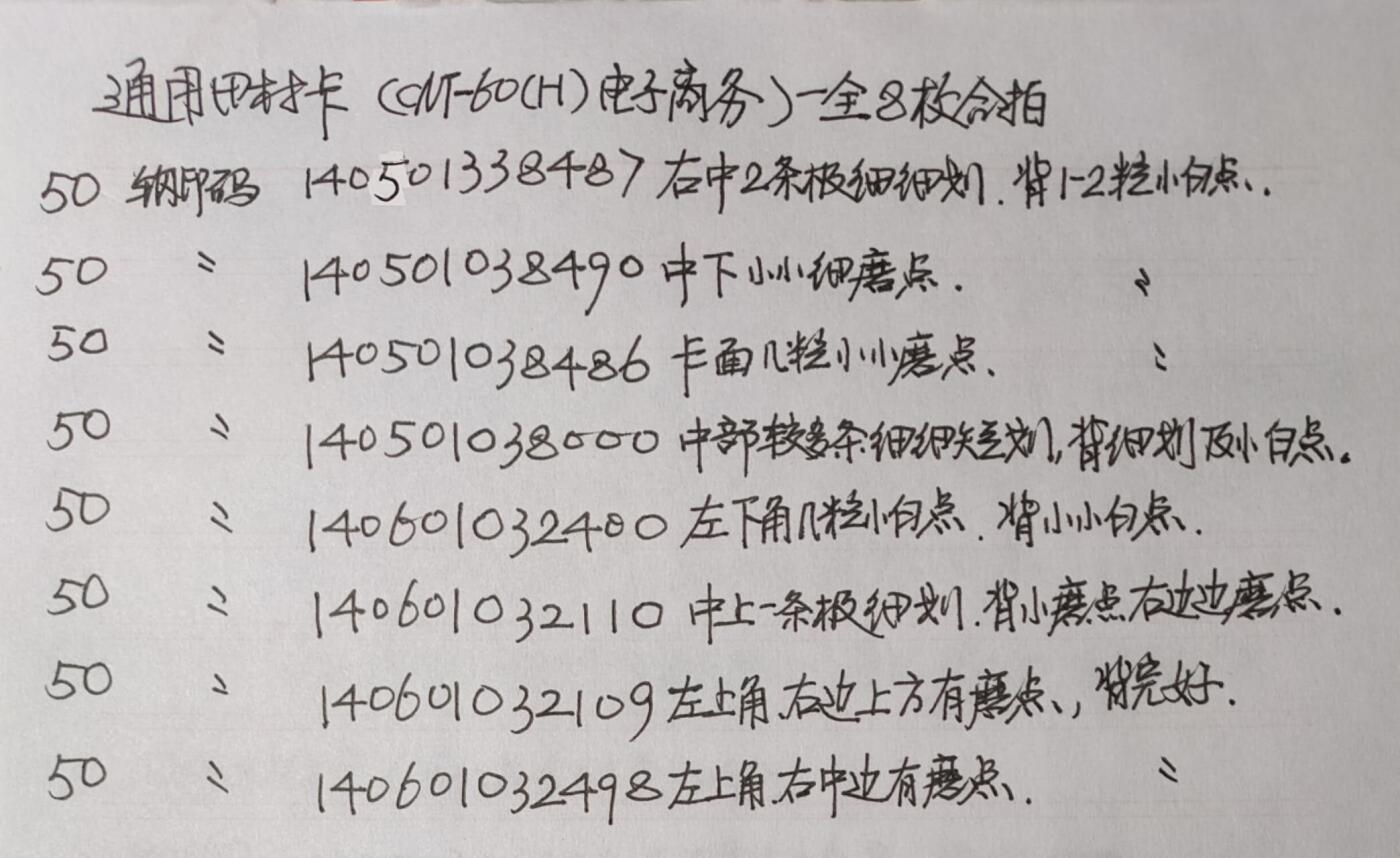 通用田村卡（CNT-60(H)电子商务）一全8枚合拍
50 钢印码 140501338487 右中2条极细细划.背1-2粒小白点.
50 〃 140501038490 中下小小细磨点. 〃
50 〃 140501038486 卡面几粒小小磨点. 〃
50 〃 140501038000 中部较多条细细短划,背细划及小白点。
50 〃 140601032400 左下角几粒小白点.背小小白点.
50 〃 140601032110 中上一条极细划.背小磨点右边边磨点.
50 〃 140601032109 左上角.右边上方有磨点,背完好.
50 〃 140601032498 左上角.右中边有磨点. 〃